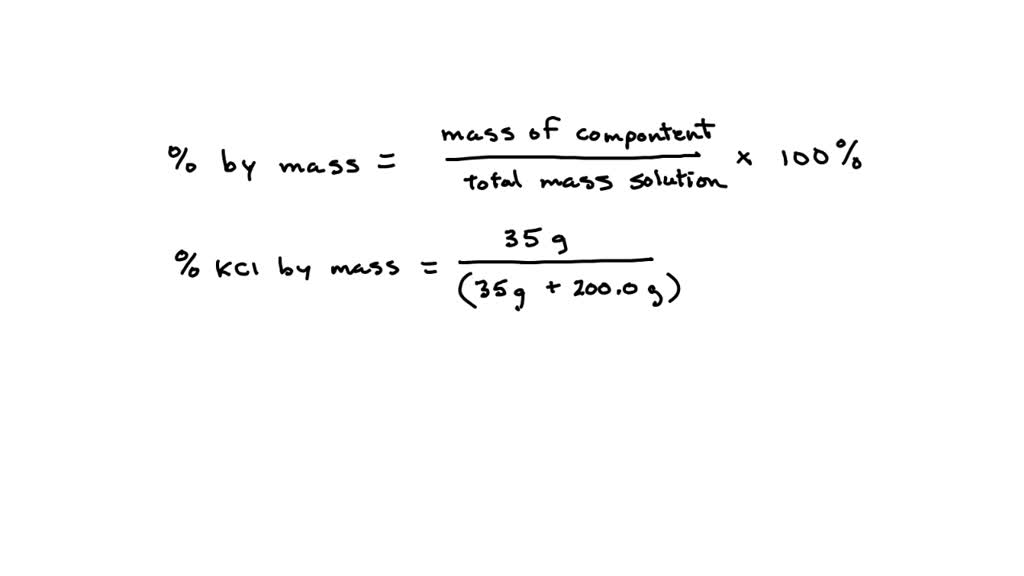 % by mass = mass of compontent / total mass solution x 100%
% KCl by mass = 35 g / (35 g + 200.0 g)